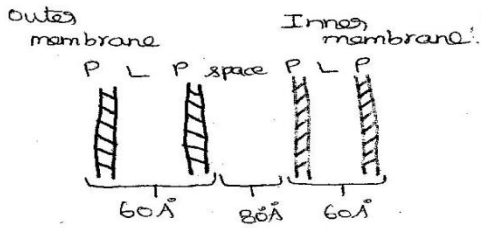 Outer
membrane
Inner
membrane:
P L P space P L P
60Å 80Å 60Å